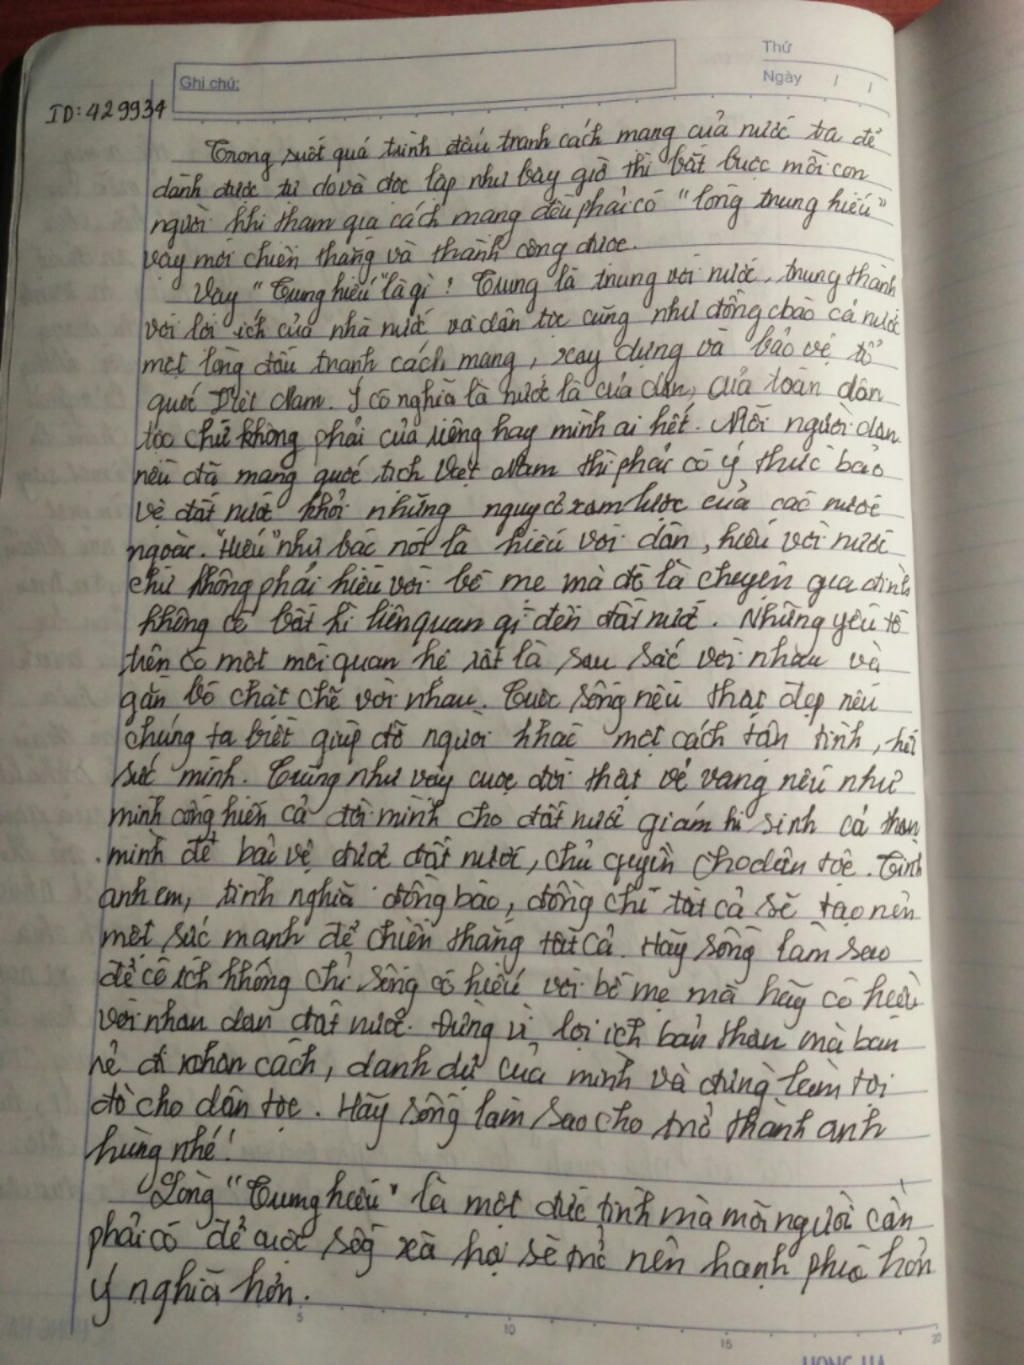 Thứ
Ghi chú:
Ngày / /
ID: 429934
Trong suốt quá trình đấu tranh cách mạng của nước ta để
dành được tự do và độc lập như bây giờ thì bắt buộc mỗi con
người khi tham gia cách mạng đều phải có "lòng trung hiếu"
vậy mới chiến thắng và thành công được.
Vậy "Trung hiếu" là gì! Trung là trung với nước, trung thành
với lợi ích của nhà nước và dân tộc cũng như đồng bào cả nước
một lòng đấu tranh cách mạng, xây dựng và bảo vệ tổ
quốc Việt Nam. Ý có nghĩa là nước là của dân, của toàn dân
tộc chứ không phải của riêng hay mình ai hết. Mỗi người dân
nếu đã mang quốc tịch Việt Nam thì phải có ý thức bảo
vệ đất nước khỏi những nguy cơ xâm lược của các nước
ngoài. "Hiếu" như bác nói là hiếu với dân, hiếu với nước
chứ không phải hiếu với bố mẹ mà đó là chuyện gia đình
không có bất kì liên quan gì đến đất nước. Những yếu tố
trên có một mối quan hệ rất là sâu sắc với nhau và
gắn bó chặt chẽ với nhau. Cuộc sống nếu thật đẹp nếu
chúng ta biết giúp đỡ người khác một cách tận tình, hết
sức mình. Cũng như vậy cuộc đời thật vẻ vang nếu như
mình cống hiến cả đời mình cho đất nước giám hi sinh cả thân
mình để bảo vệ được đất nước, chủ quyền cho dân tộc. Tình
anh em, tình nghĩa đồng bào, đồng chí tất cả sẽ tạo nên
một sức mạnh để chiến thắng tất cả. Hãy sống làm sao
để có ích không chỉ sống có hiếu với bố mẹ mà hãy có hiếu
với nhân dân đất nước. Đừng vì lợi ích bản thân mà bán
rẻ đi nhân cách, danh dự của mình và đừng làm tội
đồ cho dân tộc. Hãy sống làm sao cho trở thành anh
hùng nhé!
Lòng "Trung hiếu" là một đức tính mà mỗi người cần
phải có để cuộc sống xã hội sẽ trở nên hạnh phúc hơn
ý nghĩa hơn.
5 10 15 20
HONG HA